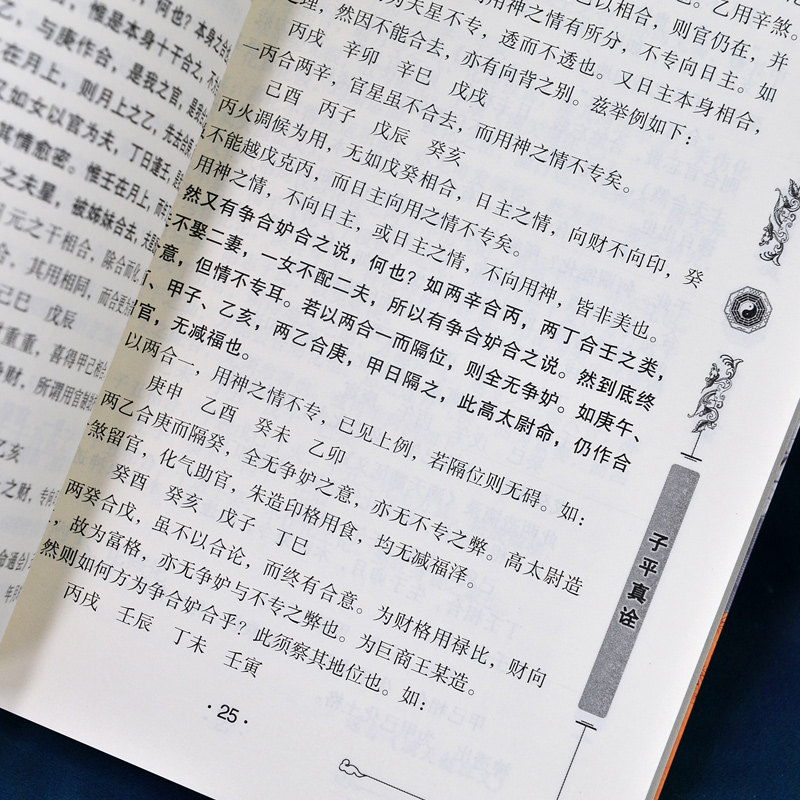 ，何也？本身之合
，惟是本身十干合之，不
乙，与庚作合，是我之官，是我
在月上，则月上之乙，先去合庚
又如女以官为夫，丁日逢壬，是
其情愈密。惟壬在月上，而年
之夫星，被姊妹合去，夫星
月元之干相合，除合而化
合，其用相同，而合更
己巳　戊辰
重重，喜得甲己
争财，所谓用官制
乙亥
之财，专向
命通会
以相合，则官仍在，并
乙用辛煞。
为夫星不专，透而不透也。又日主本身相合，
用神之情有所分，不专向日主。如
理，然因不能合去，亦有向背之别。兹举例如下：
丙戌　辛卯　辛巳　戊戌
一丙合两辛，官星虽不合去，而用神之情不专矣。
己酉　丙子　戊辰　癸亥
丙火调候为用，无如戊癸相合，日主之情，向财不向印，癸
不能越戊克丙，而日主向用之情不专矣。
用神之情，不向日主，或日主之情，不向用神，皆非美也。
然又有争合妒合之说，何也？如两辛合丙，两丁合壬之类，
夫不娶二妻，一女不配二夫，所以有争合妒合之说。然到底终
意，但情不专耳。若以两合一而隔位，则全无争妒。如庚午、
、甲子、乙亥，两乙合庚，甲日隔之，此高太尉命，仍作合
官，无减福也。
以两合一，用神之情不专，已见上例，若隔位则无碍。如：
庚申　乙酉　癸未　乙卯
两乙合庚而隔癸，全无争妒之意，亦无不专之弊。高太尉造
煞留官，化气助官，朱造印格用食，均无减福泽。
癸酉　癸亥　戊子　丁巳
两癸合戊，虽不以合论，而终有合意。为财格用禄比，财向
，故为富格，亦无争妒与不专之弊也。为巨商王某造。
然则如何方为争合妒合乎？此须察其地位也。如：
丙戌　壬辰　丁未　壬寅
·25·
子平真诠